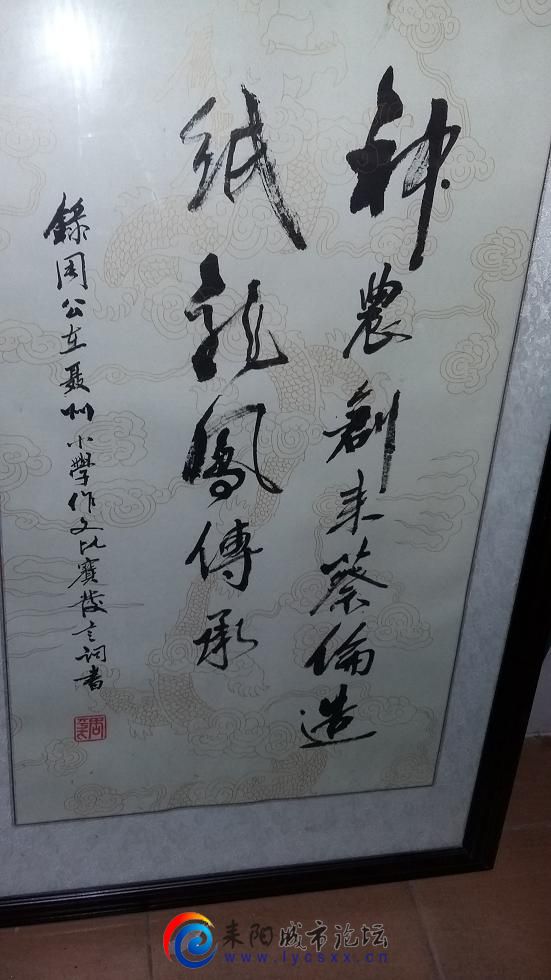 神農創耒蔡倫造
紙龍鳳傳承
録周公在聂州小學作文比賽發言词書
耒阳城市论坛
www.lycsxx.cn